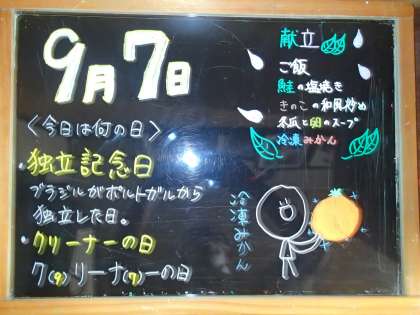 9月7日
〈今日は何の日〉
・独立記念日
ブラジルがポルトガルから
独立した日。
・クリーナーの日
ク(9)リーナ(7)ーの日
献立
ご飯
鮭の塩焼き
きのこの和風炒め
冬瓜と卵のスープ
冷凍みかん
冷凍みかん